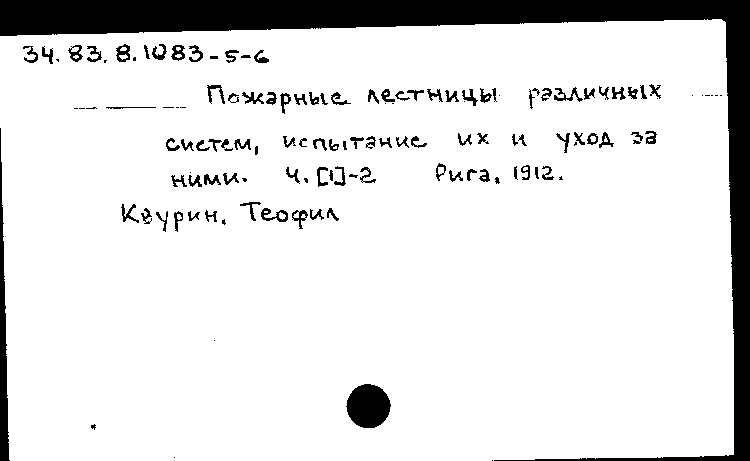 34.83.8.1083-5-6
Пожарные лестницы различных
систем, испытание их и уход за
ними. Ч. [1]-2 Рига, 1912.
Каурин, Теофил